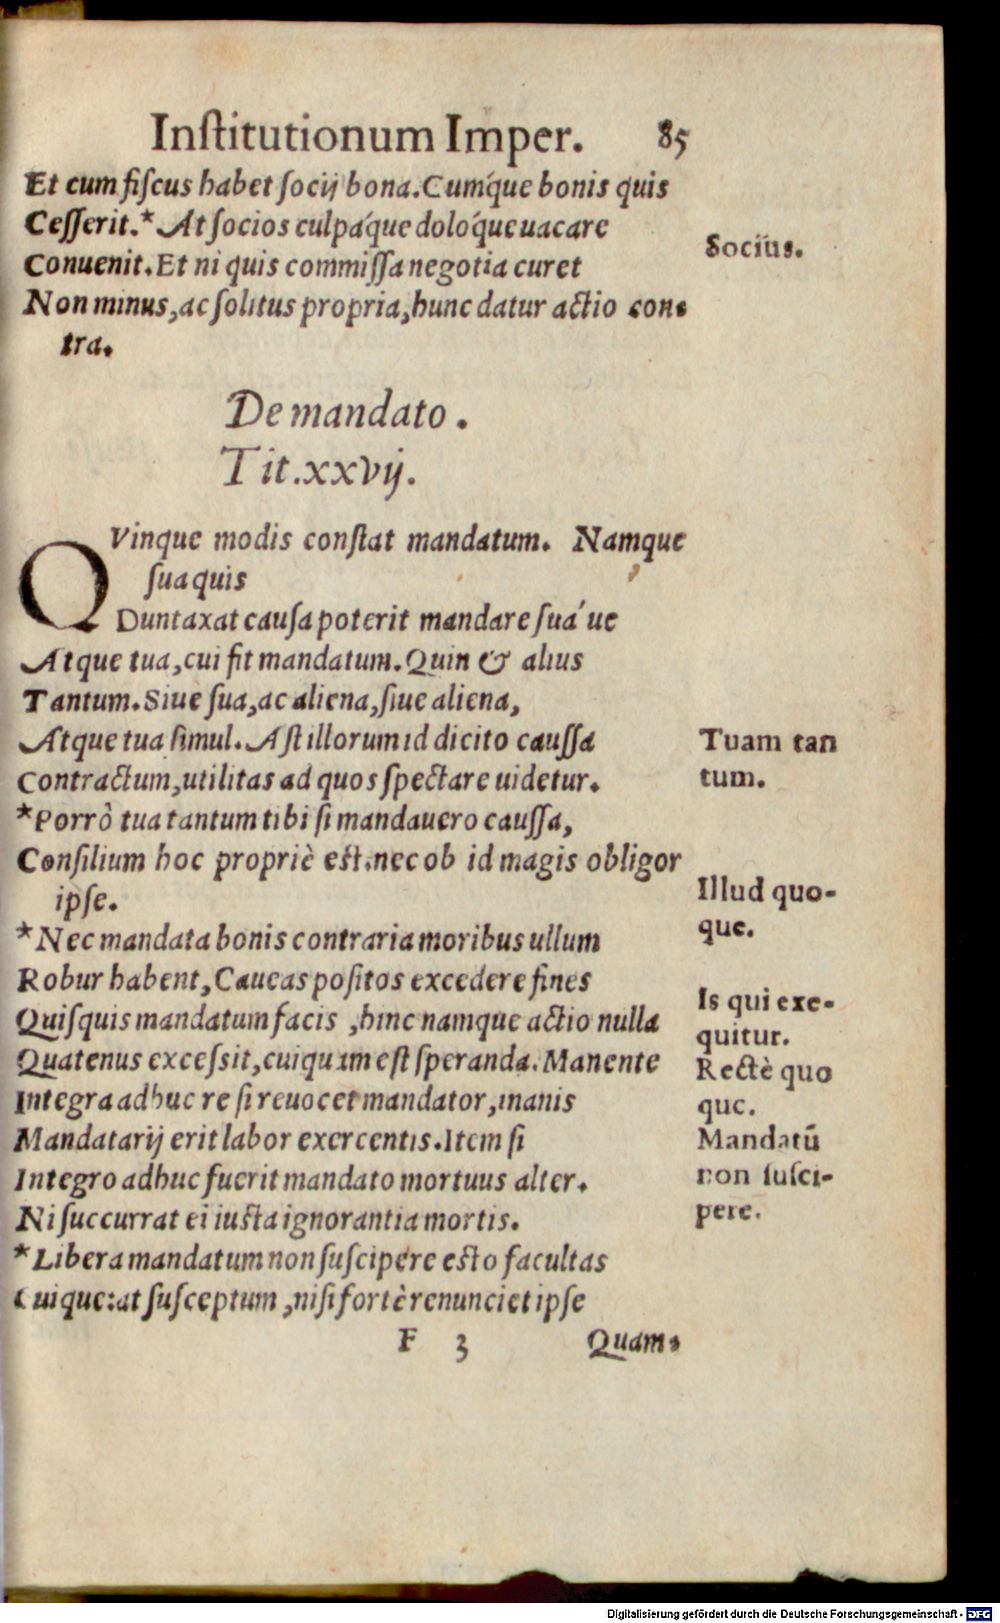 Inſtitutionum Imper. 85
Et cum fiſcus habet ſocij bona. Cumq́ue bonis quis
Ceſſerit.* At ſocios culpáque dolóque uacare
Conuenit. Et ni quis commiſſa negotia curet
Non minus, ac ſolitus propria, hunc datur actio con-
tra.
Socius.
De mandato.
Tit. xxvij.
QVinque modis conſtat mandatum. Namque
ſua quis
Duntaxat cauſa poterit mandare ſuá ue
Atque tua, cui fit mandatum. Quin & alius
Tantum. Siue ſua, ac aliena, ſiue aliena,
Atque tua ſimul. Aſt illorum id dicito cauſſa
Contractum, utilitas ad quos ſpectare uidetur.
*Porrò tua tantum tibi ſi mandauero cauſſa,
Conſilium hoc propriè eſt. nec ob id magis obligor
ipſe.
*Nec mandata bonis contraria moribus ullum
Robur habent, Caueas poſitos excedere fines
Quiſquis mandatum facis, hinc namque actio nulla
Quatenus exceſsit, cuiquam eſt ſperanda. Manente
Integra adhuc re ſi reuocet mandator, inanis
Mandatarij erit labor exercentis. Item ſi
Integro adhuc fuerit mandato mortuus alter.
Ni ſuccurrat ei iuſta ignorantia mortis.
*Libera mandatum non ſuſcipere eſto facultas
Cuique: at ſuſceptum, niſi fortè renunciet ipſe
Tuam tan
tum.
Illud quo-
que.
Is qui exe-
quitur.
Rectè quo
que.
Mandatū
non ſuſci-
pere.
F 3 Quam-
Digitalisierung gefördert durch die Deutsche Forschungsgemeinschaft - DFG